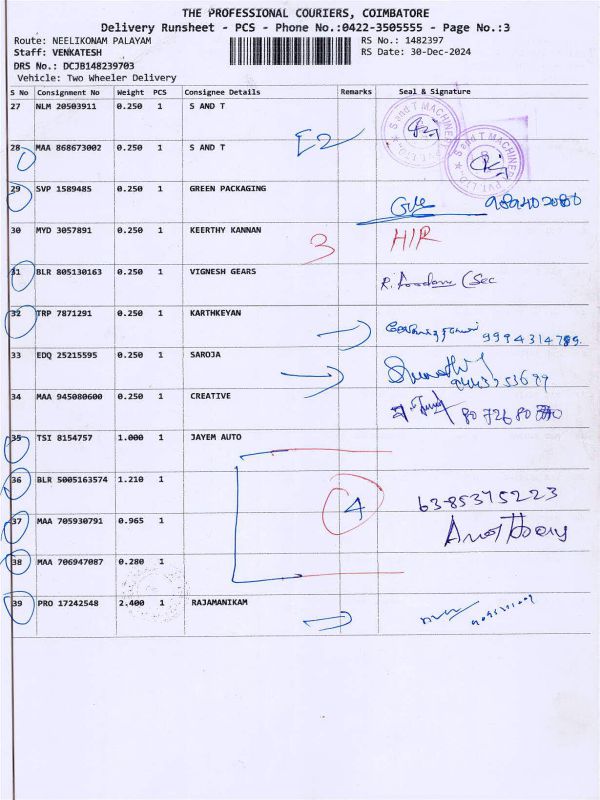 THE PROFESSIONAL COURIERS, COIMBATORE
Delivery Runsheet - PCS - Phone No.:0422-3505555 - Page No.:3
Route: NEELIKONAM PALAYAM
RS No.: 1482397
Staff: VENKATESH
RS Date: 30-Dec-2024
DRS No.: DCJB148239703
Vehicle: Two Wheeler Delivery
S No Consignment No Weight PCS Consignee Details Remarks Seal & Signature
27 NLM 20503911 0.250 1 S AND T
S and T MACHINERY PVT. LTD.
28 MAA 868673002 0.250 1 S AND T
S and T MACHINERY PVT. LTD.
29 SVP 1589485 0.250 1 GREEN PACKAGING
30 MYD 3057891 0.250 1 KEERTHY KANNAN 3 H/R
31 BLR 805130163 0.250 1 VIGNESH GEARS
32 TRP 7871291 0.250 1 KARTHKEYAN
9994314789.
33 EDQ 25215595 0.250 1 SAROJA
34 MAA 945080600 0.250 1 CREATIVE
35 TSI 8154757 1.000 1 JAYEM AUTO
36 BLR 5005163574 1.210 1
4 63-85375223
37 MAA 705930791 0.965 1
38 MAA 706947087 0.280 1
39 PRO 17242548 2.400 1 RAJAMANIKAM